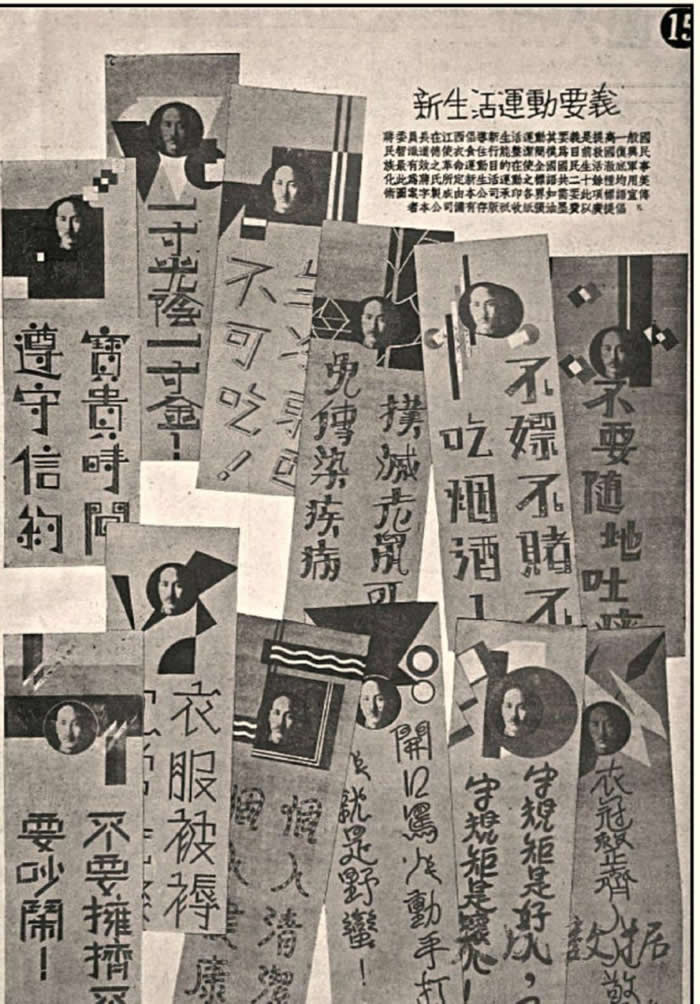 15
新生活運動要義
蔣委員長在江西倡導新生活運動其要義是提高一般國
民智識道德使衣食住行能整潔簡樸為目前救國復興民
族最有效之革命運動目的在使全國國民生活澈底軍事
化此為蔣氏所定新生活運動之標語共二十餘種均用美
術圖案字製成由本公司承印各界如需要此項標語宣傳
者本公司備有存版祇收紙張油墨費以廣提倡
寶貴時間
遵守信約
一寸光陰一寸金！
不可吃！
撲滅老鼠可
免傳染疾病
不嫖不賭不
吃烟酒！
不要隨地吐
不要擁擠不
要吵鬧！
衣服被褥
個人清潔
個人健康
開口罵人動手打
就是野蠻！
守規矩是好人，
守規矩是壞人！
衣冠整齊人人敬